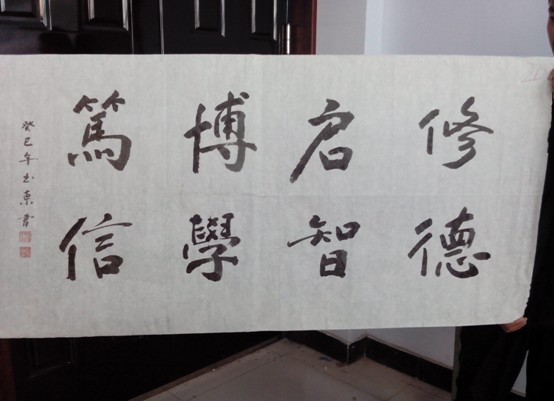 修德
启智
博學
篤信
癸巳年志東書